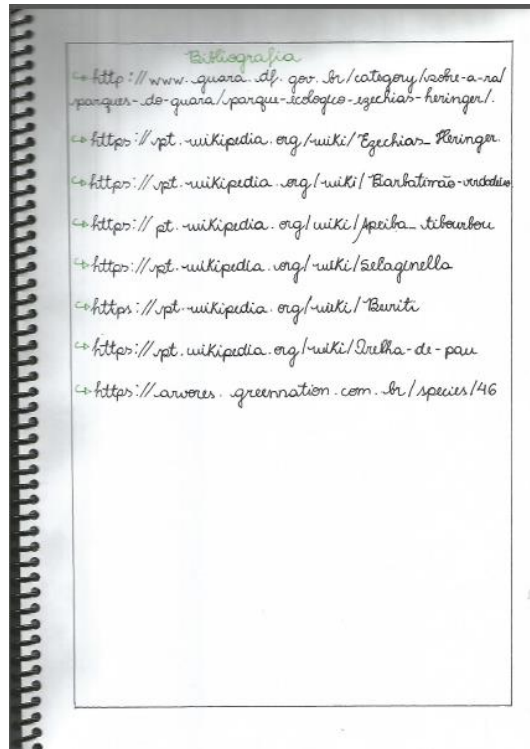 Bibliografia
↪ http://www.guara.df.gov.br/category/sobre-a-ra/
parques-do-guara/parque-ecologico-ezechias-heringer/.
↪ https://pt.wikipedia.org/wiki/Ezechias_Heringer.
↪ https://pt.wikipedia.org/wiki/Barbatimão-verdadeiro
↪ https://pt.wikipedia.org/wiki/Apeiba_tibourbou
↪ https://pt.wikipedia.org/wiki/Selaginella
↪ https://pt.wikipedia.org/wiki/Buriti
↪ https://pt.wikipedia.org/wiki/Orelha-de-pau
↪ https://arvores.greennation.com.br/species/46